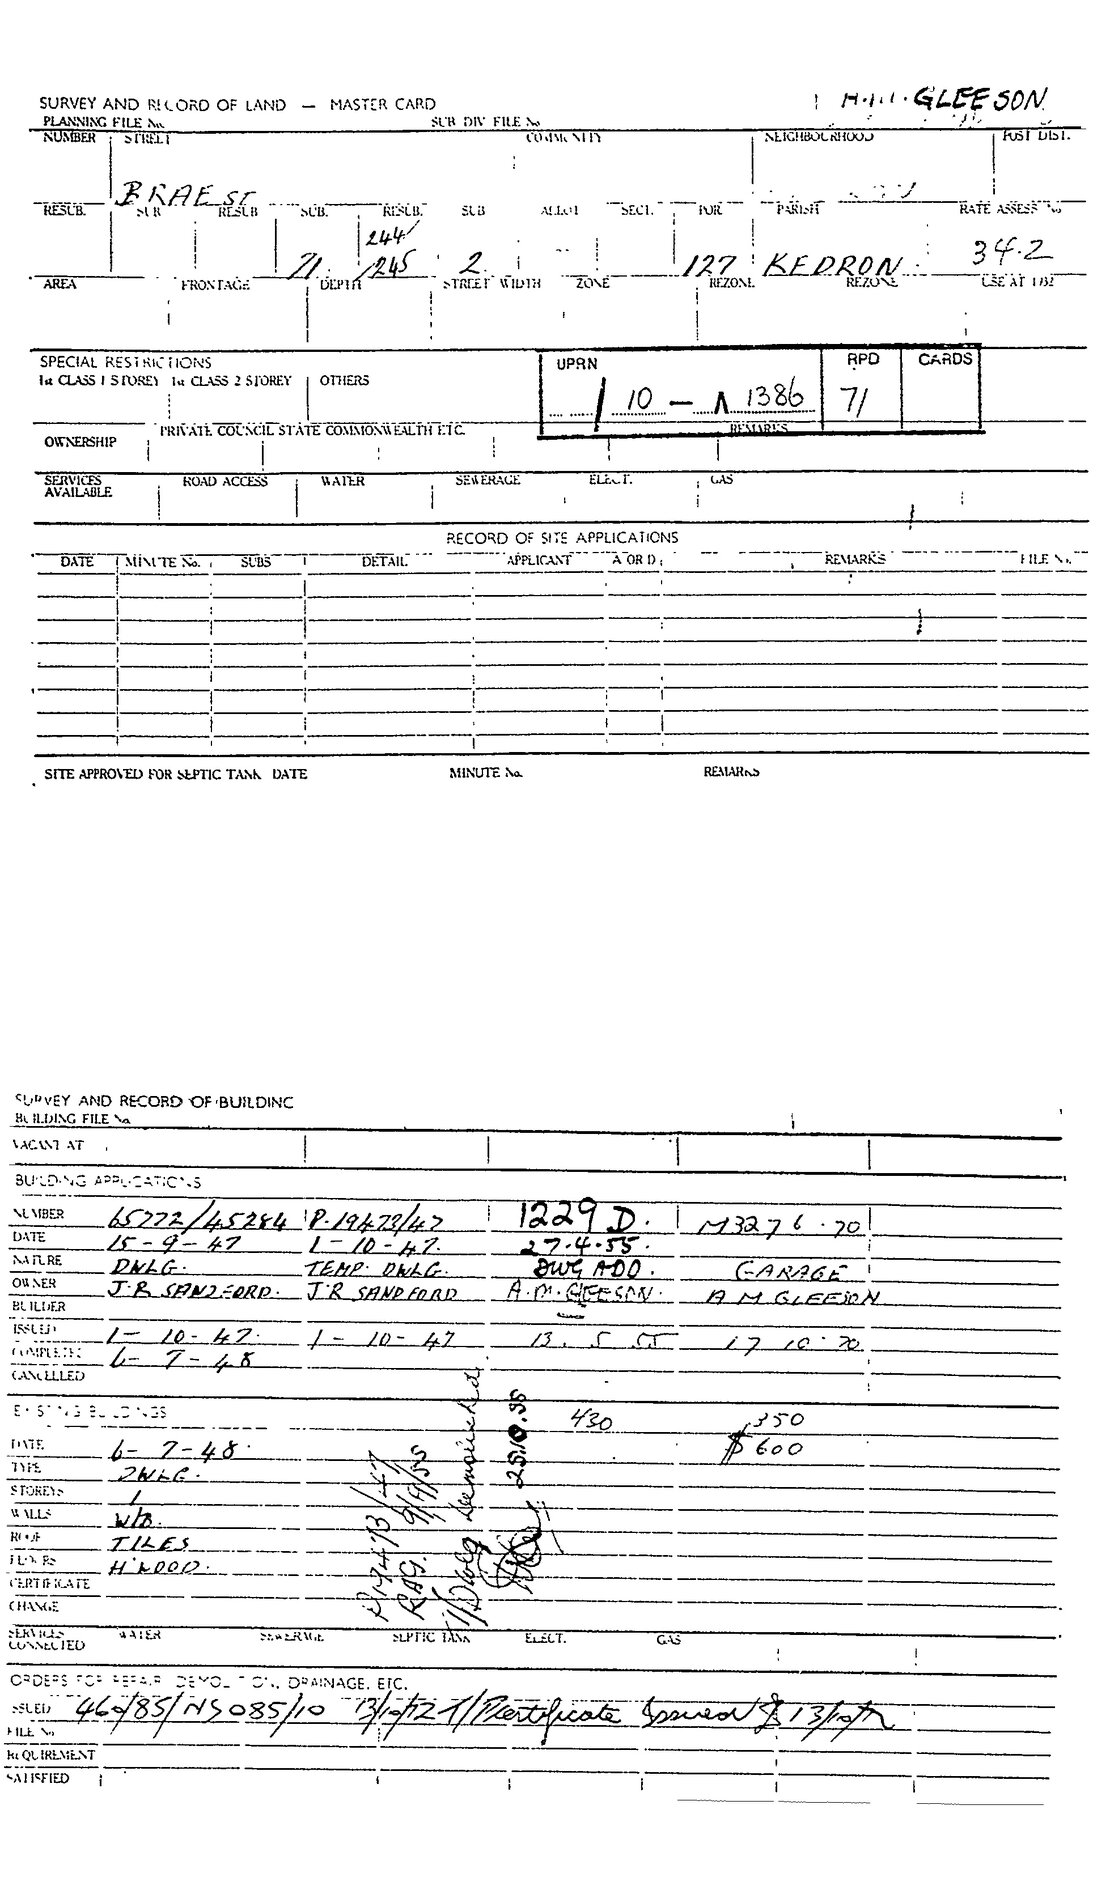 GLEESON
SURVEY AND RECORD OF LAND — MASTER CARD
PLANNING FILE No. SUB DIV FILE No
NUMBER STREET COMMUNITY NEIGHBOURHOOD POST DIST.
BRAE ST
RESUB. SUB RESUB SUB. RESUB. SUB ALLOT SECT. POR PARISH RATE ASSESS No
244/
71. /245 2. 127 KEDRON 34.2
AREA FRONTAGE DEPTH STREET WIDTH ZONE REZONE REZONE USE AT
SPECIAL RESTRICTIONS UPRN RPD CARDS
1st CLASS 1 STOREY 1st CLASS 2 STOREY OTHERS
/ 10 — 1386 71
PRIVATE COUNCIL STATE COMMONWEALTH ETC. REMARKS
OWNERSHIP
SERVICES AVAILABLE ROAD ACCESS WATER SEWERAGE ELECT. GAS
RECORD OF SITE APPLICATIONS
DATE MINUTE No. SUBS DETAIL APPLICANT A OR D REMARKS FILE No.
SITE APPROVED FOR SEPTIC TANK DATE MINUTE No. REMARKS
SURVEY AND RECORD OF BUILDING
BUILDING FILE No.
VACANT AT
BUILDING APPLICATIONS
NUMBER 65772/45284 P.19473/47 1229 D. M3276.70
DATE 15-9-47 1-10-47. 27.4.55.
NATURE DWLG. TEMP. DWLG. DWG ADD. GARAGE
OWNER J.R SANDFORD. J.R SANDFORD A.M. GLEESON. A M GLEESON
BUILDER
ISSUED 1-10-47. 1-10-47 13. 5 55 17 10.70
COMPLETED 6-7-48
CANCELLED
EXISTING BUILDINGS 430 350
DATE 6-7-48. $600
TYPE DWLG.
STOREYS 1
WALLS W/B.
ROOF TILES
FLOORS H'WOOD.
CERTIFICATE
CHANGE
P19473/47
RAG. 9/9/55
T/Dwlg Demolished
25.10.55
SERVICES CONNECTED WATER SEWERAGE SEPTIC TANK ELECT. GAS
ORDERS FOR REPAIR, DEMOLITION, DRAINAGE, ETC.
ISSUED 460/85/NS085/10 13/10/72 T/Pcertificate Issued 13/10/72
FILE No.
REQUIREMENT
SATISFIED